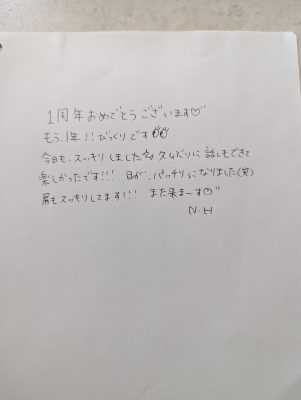 1周年おめでとうございます♡
もう、1年!!びっくりです👀
今日も、スッキリしました☆ 久々に話もできて
楽しかったです!!! 目が、パッチリになりました(笑)
肩もスッキリしてます!!! また来まーす♡
N.H